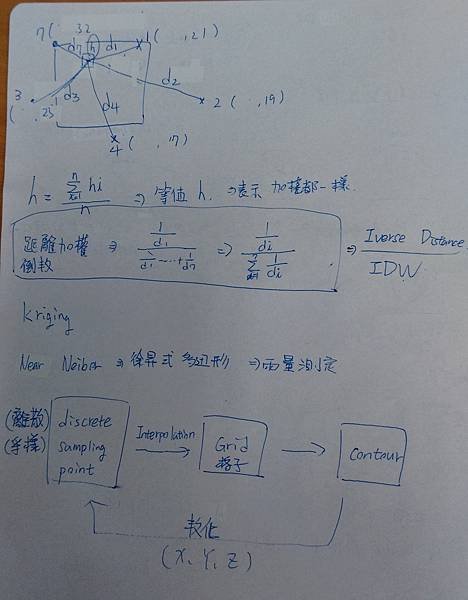 7( , 32
1( , 21)
d7
h
d1
d2
2 ( , 19)
3
( , 23)
d3
d4
4 ( , 17)
h = Σ(i=1→n) hi / n ⇒ 等值 h. ⇒表示 加權都一樣.
距離加權倒數 ⇒ (1/d1) / (1/d1 ····+ 1/dn) ⇒ (1/di) / (Σ 1/di) ⇒ Iverse Distance / IDW
kriging
Near Neiber ⇒ 徐昇式 多边形 ⇒雨量測定
(離散) discrete
(采樣) sampling
point
Interpolation
Grid
格子
Contour
軟化
(X, Y, Z)